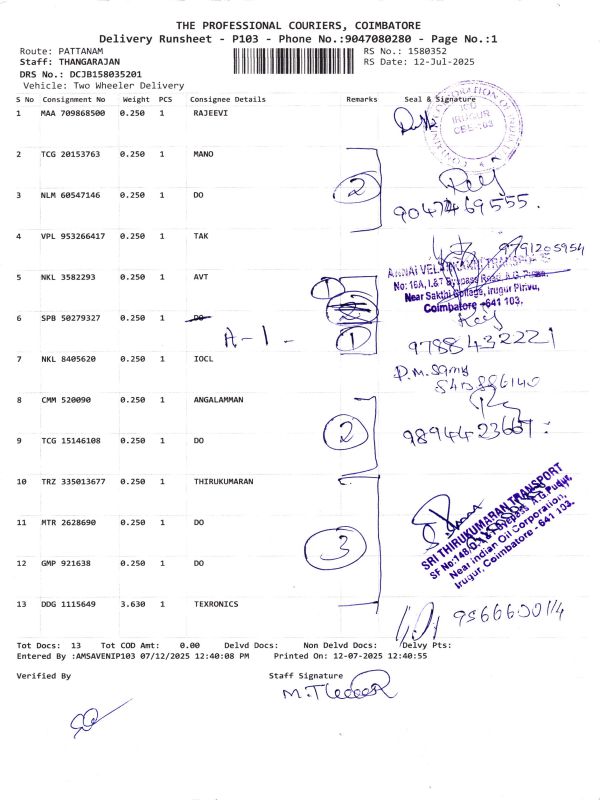 THE PROFESSIONAL COURIERS, COIMBATORE
Delivery Runsheet - P103 - Phone No.:9047080280 - Page No.:1
Route: PATTANAM RS No.: 1580352
Staff: THANGARAJAN RS Date: 12-Jul-2025
DRS No.: DCJB158035201
Vehicle: Two Wheeler Delivery
S No Consignment No Weight PCS Consignee Details Remarks Seal & Signature
1 MAA 709868500 0.250 1 RAJEEVI
2 TCG 20153763 0.250 1 MANO
2
3 NLM 60547146 0.250 1 DO
4 VPL 953266417 0.250 1 TAK
9791205954
No: 16A, L&T Bypass Road, A.G. Pudur,
Near Sakthi College, Irugur Pirivu,
Coimbatore - 641 103.
5 NKL 3582293 0.250 1 AVT
1
6 SPB 50279327 0.250 1 DO
A-1- 1
9788432221
7 NKL 8405620 0.250 1 IOCL
8 CMM 520090 0.250 1 ANGALAMMAN
2
9 TCG 15146108 0.250 1 DO
10 TRZ 335013677 0.250 1 THIRUKUMARAN
SRI THIRUKUMARAN TRANSPORT
Near Indian Oil Corporation,
Irugur, Coimbatore - 641 103.
11 MTR 2628690 0.250 1 DO
3
12 GMP 921638 0.250 1 DO
13 DDG 1115649 3.630 1 TEXRONICS
Tot Docs: 13 Tot COD Amt: 0.00 Delvd Docs: Non Delvd Docs: Delvy Pts:
Entered By :AMSAVENIP103 07/12/2025 12:40:08 PM Printed On: 12-07-2025 12:40:55
Verified By Staff Signature